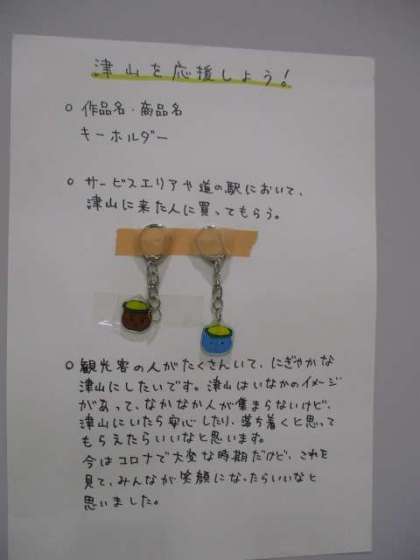 津山を応援しよう!
○ 作品名・商品名
キーホルダー
○ サービスエリアや道の駅において、
津山に来た人に買ってもらう。
○ 観光客の人がたくさんいて、にぎやかな
津山にしたいです。津山はいなかのイメージ
があって、なかなか人が集まらないけど、
津山にいたら安心したり、落ち着くと思って
もらえたらいいなと思います。
今はコロナで大変な時期だけど、これを
見て、みんなが笑顔になったらいいなと
思いました。